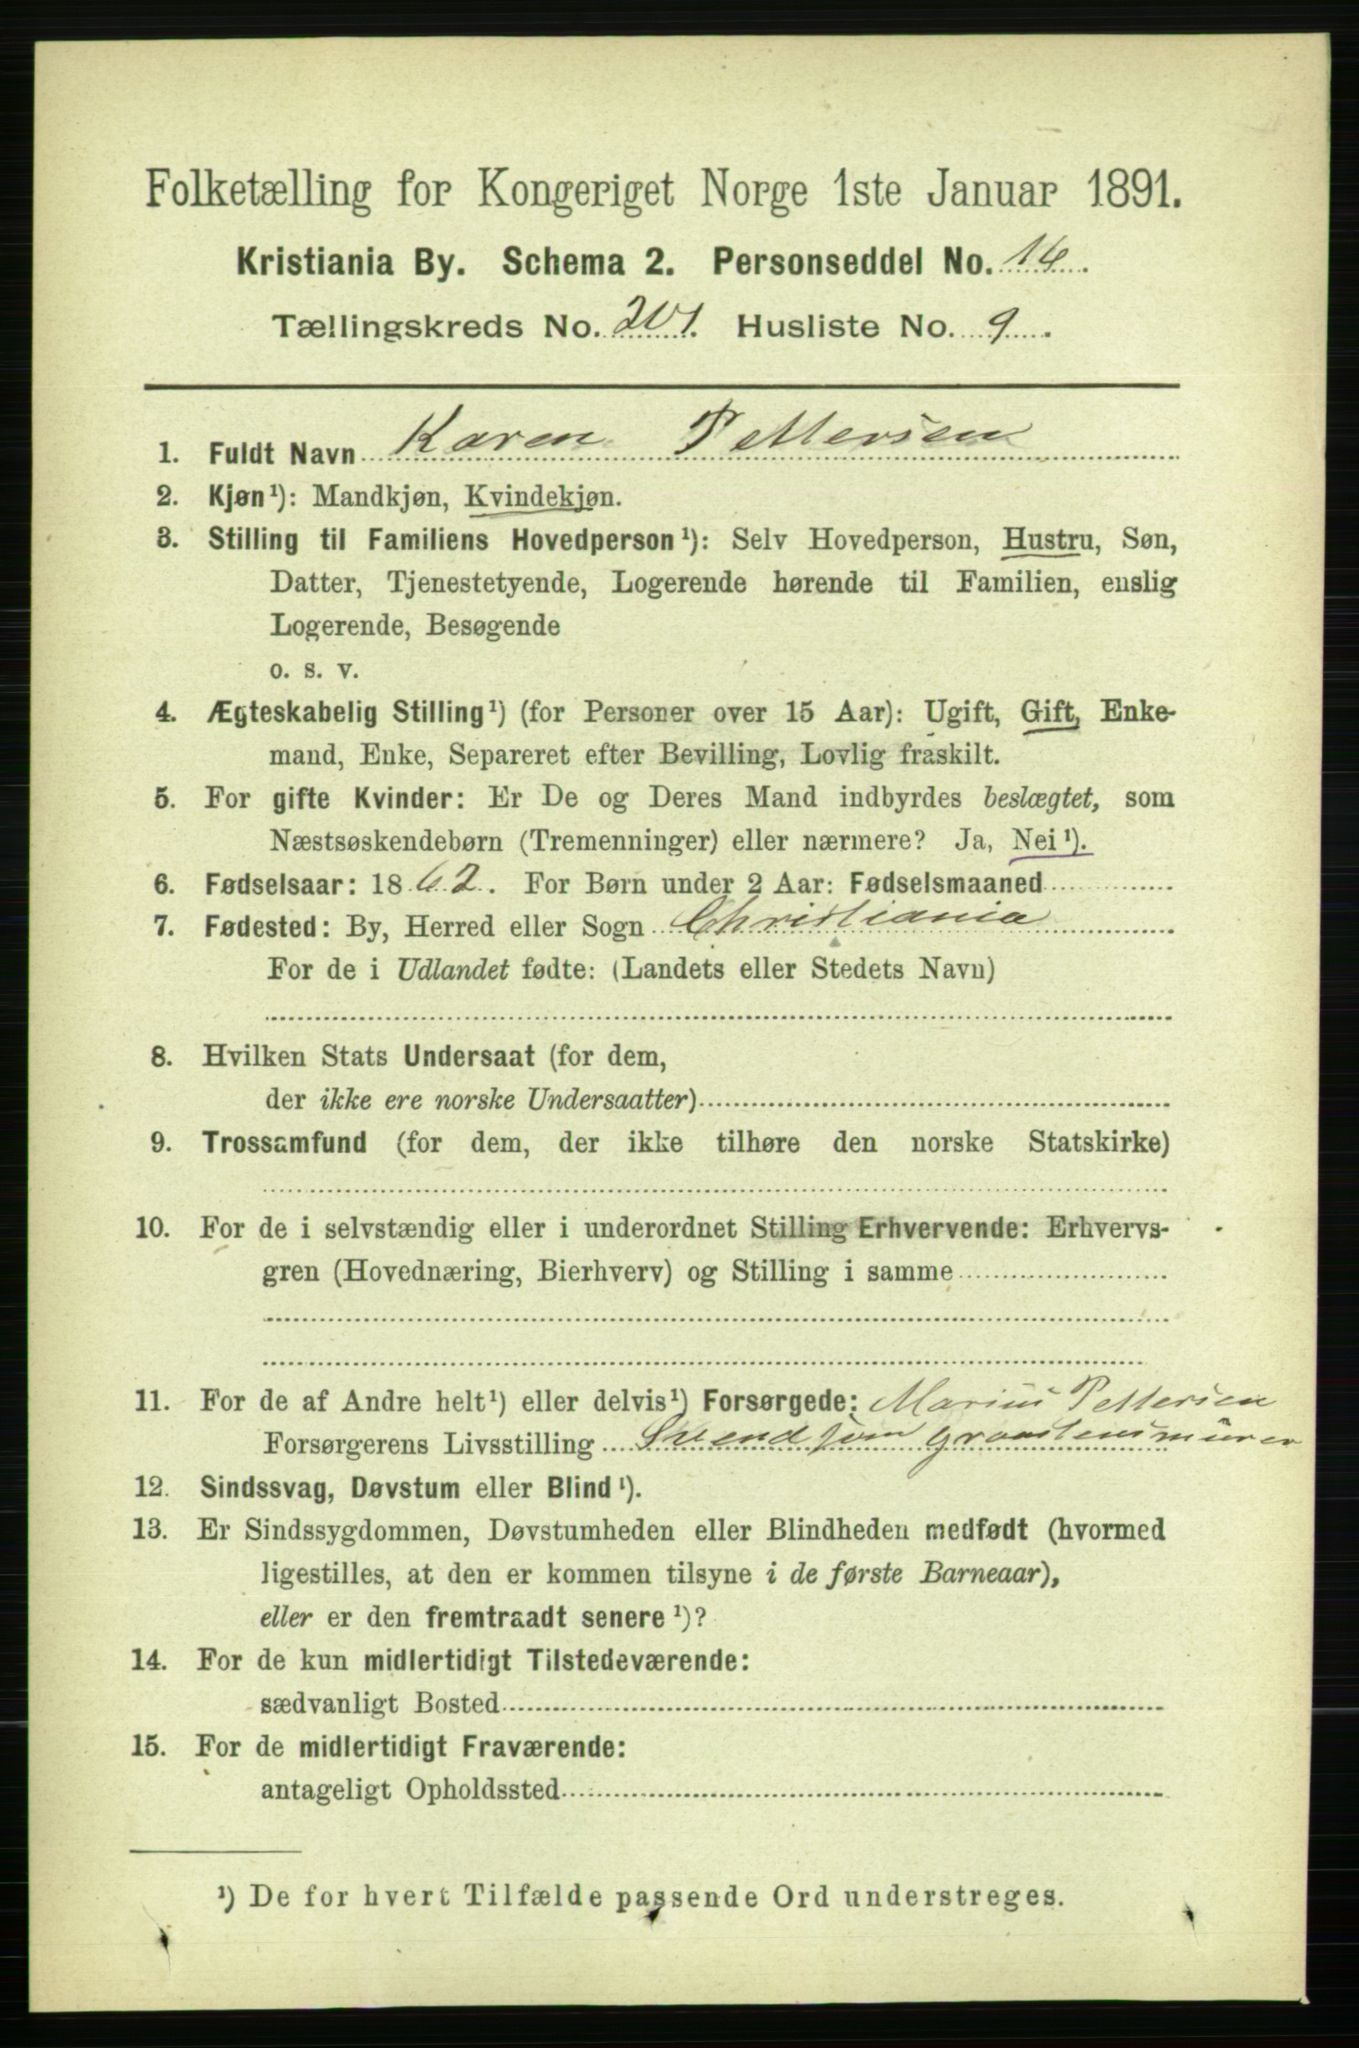 Folketælling for Kongeriget Norge 1ste Januar 1891.
Kristiania By. Schema 2. Personseddel No. 16.
Tællingskreds No. 201. Husliste No. 9.
1. Fuldt Navn Karen Pettersen
2. Kjøn¹): Mandkjøn, Kvindekjøn.
3. Stilling til Familiens Hovedperson¹): Selv Hovedperson, Hustru, Søn,
Datter, Tjenestetyende, Logerende hørende til Familien, enslig
Logerende, Besøgende
o. s. v.
4. Ægteskabelig Stilling¹) (for Personer over 15 Aar): Ugift, Gift, Enke-
mand, Enke, Separeret efter Bevilling, Lovlig fraskilt.
5. For gifte Kvinder: Er De og Deres Mand indbyrdes beslægtet, som
Næstsøskendebørn (Tremenninger) eller nærmere? Ja, Nei¹).
6. Fødselsaar: 1862. For Børn under 2 Aar: Fødselsmaaned
7. Fødested: By, Herred eller Sogn Christiania
For de i Udlandet fødte: (Landets eller Stedets Navn)
8. Hvilken Stats Undersaat (for dem,
der ikke ere norske Undersaatter)
9. Trossamfund (for dem, der ikke tilhøre den norske Statskirke)
10. For de i selvstændig eller i underordnet Stilling Erhvervende: Erhvervs-
gren (Hovednæring, Bierhverv) og Stilling i samme
11. For de af Andre helt¹) eller delvis¹) Forsørgede: Marius Pettersen
Forsørgerens Livsstilling Svend som Graastensmurer
12. Sindssvag, Døvstum eller Blind¹).
13. Er Sindssygdommen, Døvstumheden eller Blindheden medfødt (hvormed
ligestilles, at den er kommen tilsyne i de første Barneaar),
eller er den fremtraadt senere¹)?
14. For de kun midlertidigt Tilstedeværende:
sædvanligt Bosted
15. For de midlertidigt Fraværende:
antageligt Opholdssted
¹) De for hvert Tilfælde passende Ord understreges.